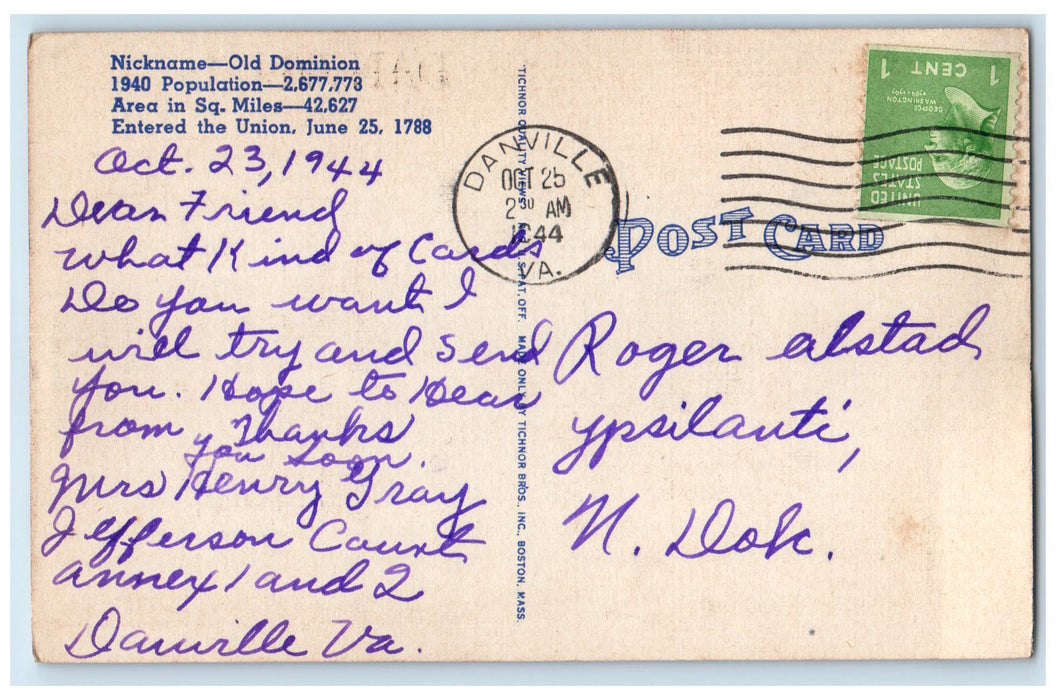 Nickname—Old Dominion
1940 Population—2,677,773
Area in Sq. Miles—42,627
Entered the Union, June 25, 1788
Oct. 23, 1944
Dear Friend
What Kind of Cards
Do you want I
will try and send
you. Hope to Hear
from you soon.
Thanks
Mrs Henry Gray
Jefferson Court
annex 1 and 2
Danville Va.
TICHNOR QUALITY VIEWS, PAT. OFF. MADE ONLY BY TICHNOR BROS., INC., BOSTON, MASS.
DANVILLE
OCT 25
2 30 AM
1944
VA.
POST CARD
UNITED
STATES
POSTAGE
GEORGE
WASHINGTON
1789-1797
1 CENT 1
Roger alstad
ypsilanti,
N. Dak.